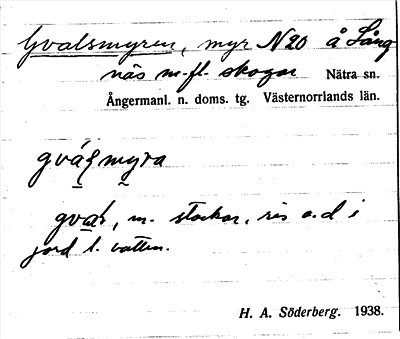 Gvalsmyren, myr N20 å Lång
näs m.fl. skogar Nätra sn.
Ångermanl. n. doms. tg. Västernorrlands län.
myra
m. stockar, ris o.d i
jord l. vatten.
H. A. Söderberg. 1938.